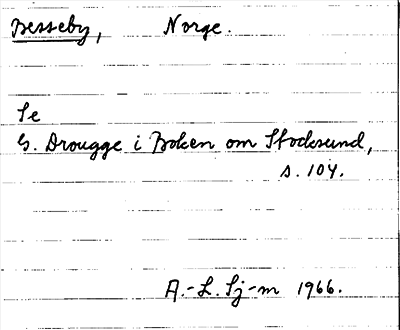 Besseby, Norge.
Se
G. Drougge i Boken om Stocksund,
s. 104.
A.-L. Sj-m 1966.